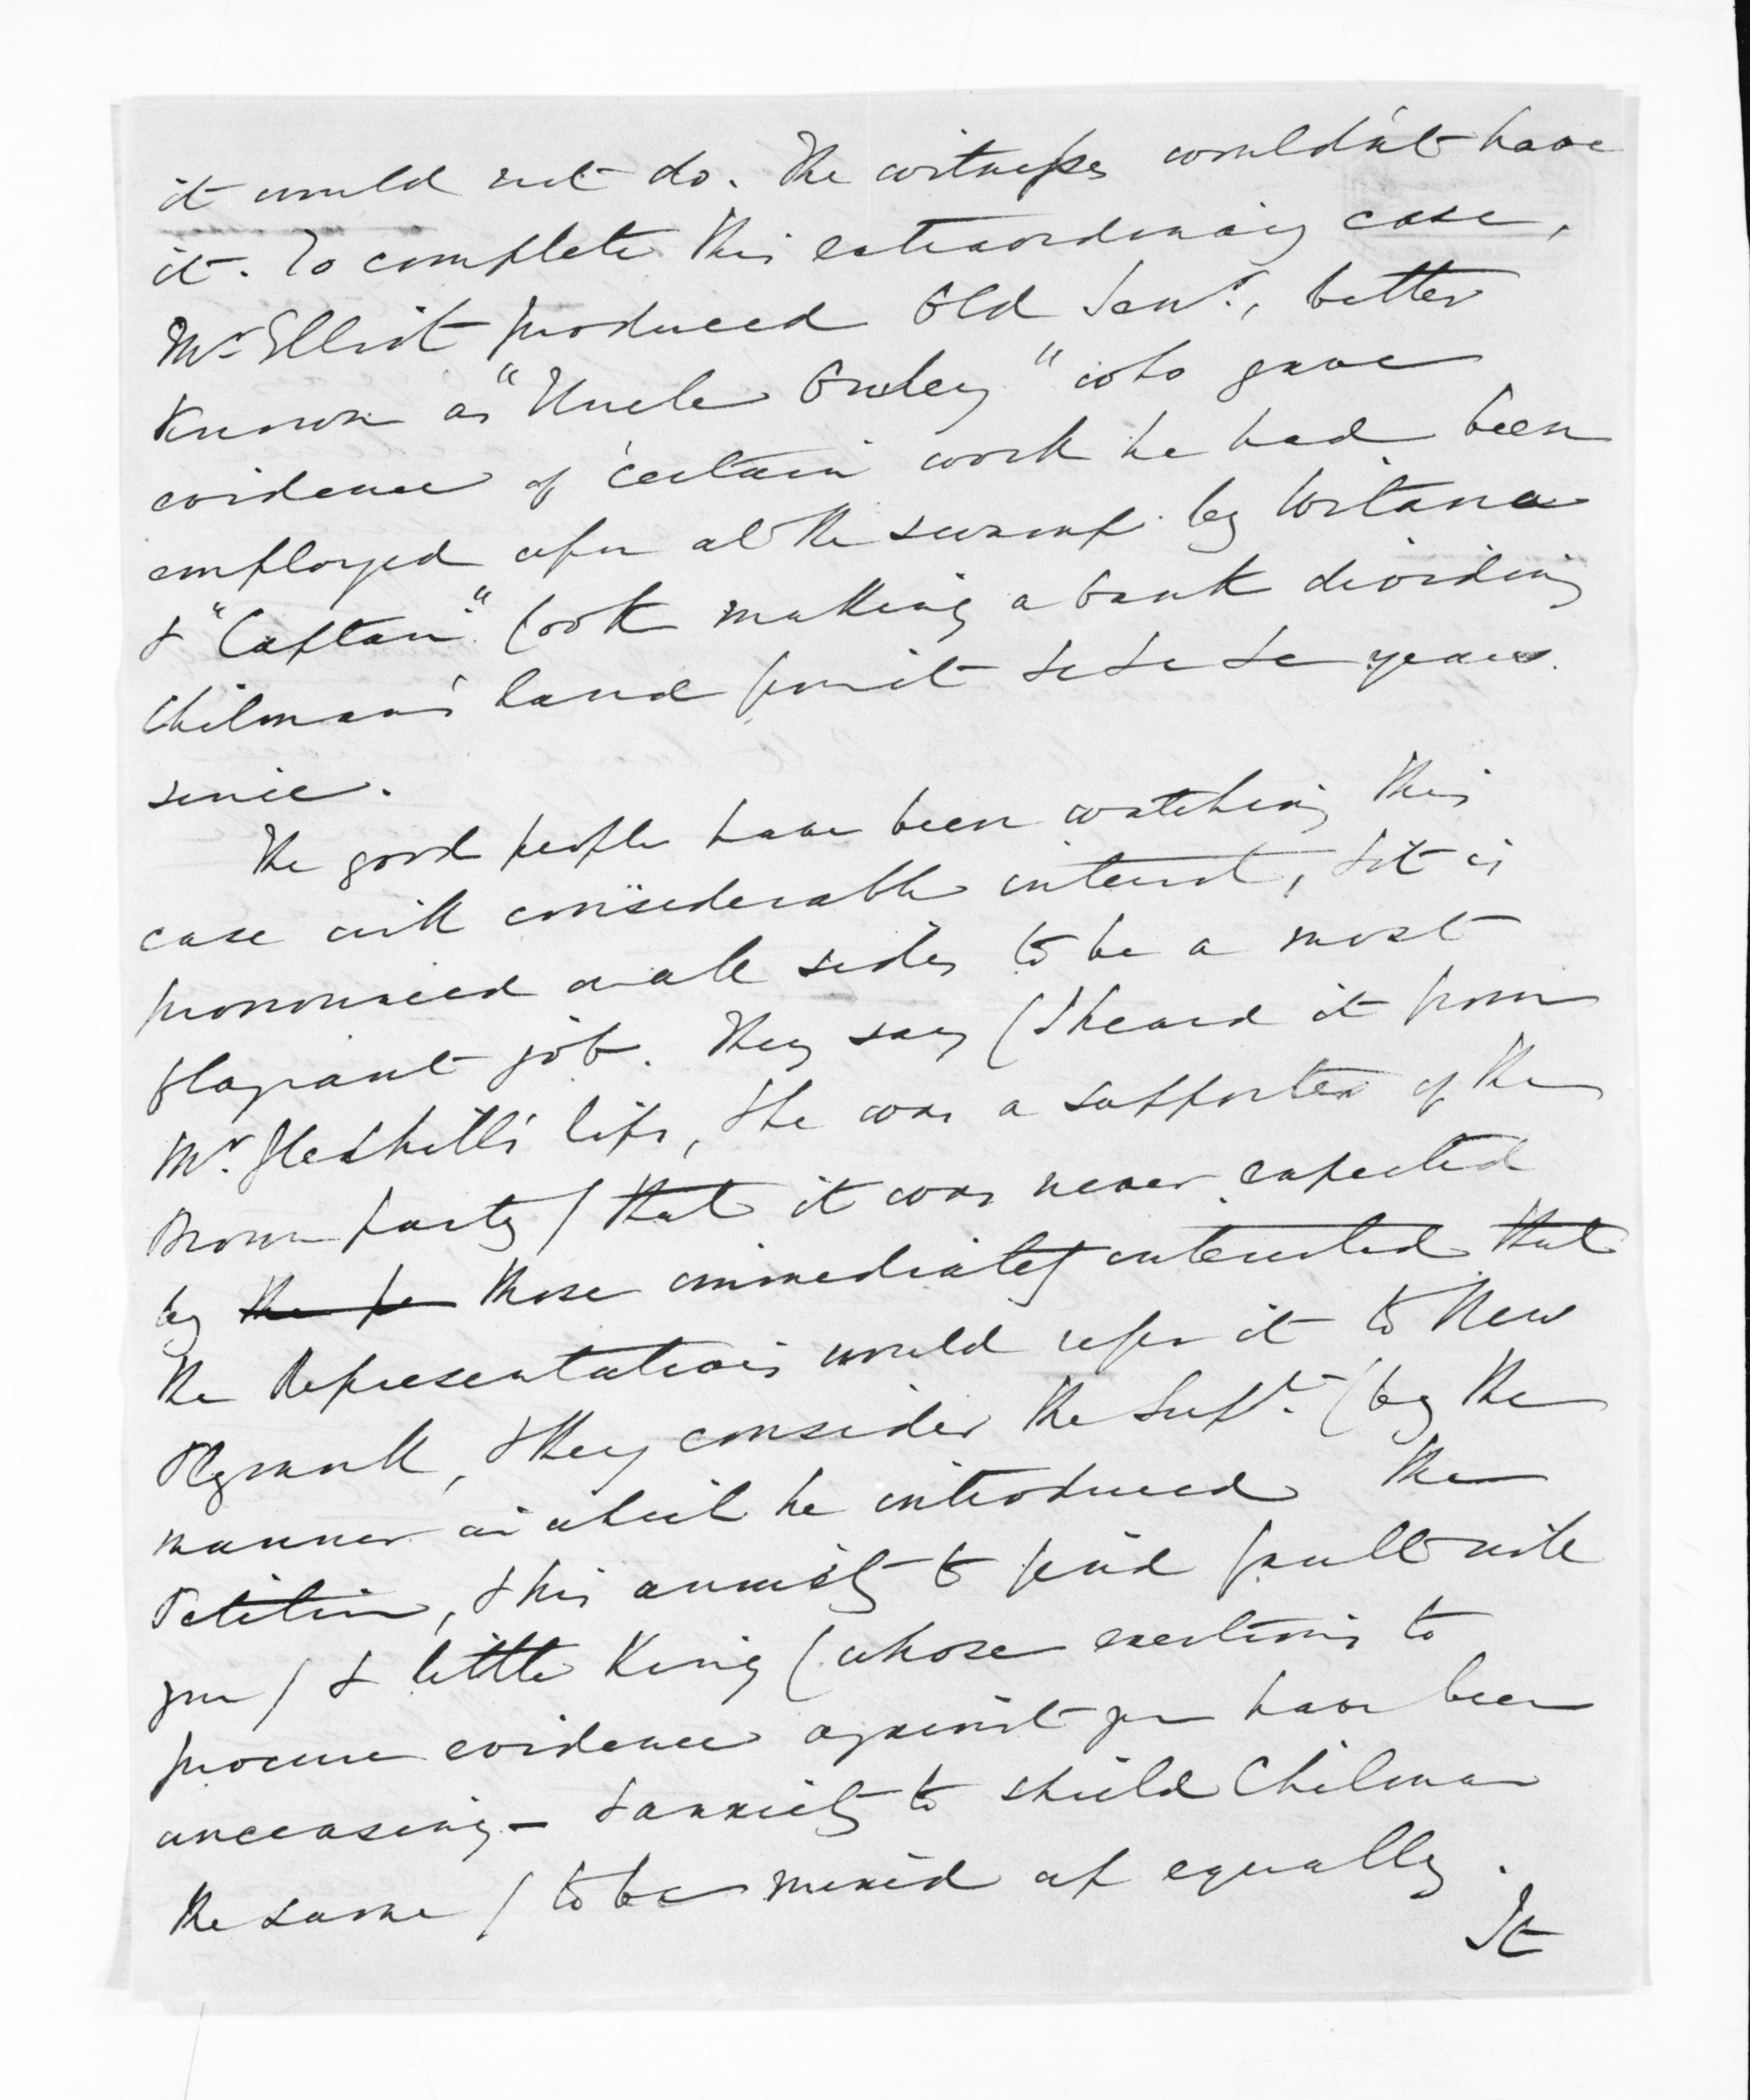 it would not do. The witnesses wouldn't have
it. To complete this extraordinary case,
Mr Elliot produced Old Senr., better
known as "Uncle" who gave
evidence of certain work he had been
employed upon at the swamp by Witana
& "Captain" Cook making a bank dividing
Chilman's land from it years
since.
The good people have been watching this
case with considerable interest, & it is
pronounced on all sides to be a most
flagrant job. They say (I heard it from
Mr. Halskett's lips, & he was a supporter of the
Brown party) that it was never expected
by the pe those immediately interested that
the Representatives would refer it to New
Plymouth, & they consider the Supt. (by the
manner in which he introduced the
Petition, & his anxiety to find fault with
you) & little King (whose exertions to
procure evidence against you have been
unceasing - & anxiety to shield Chilman
the same) to be mixed up equally.
It